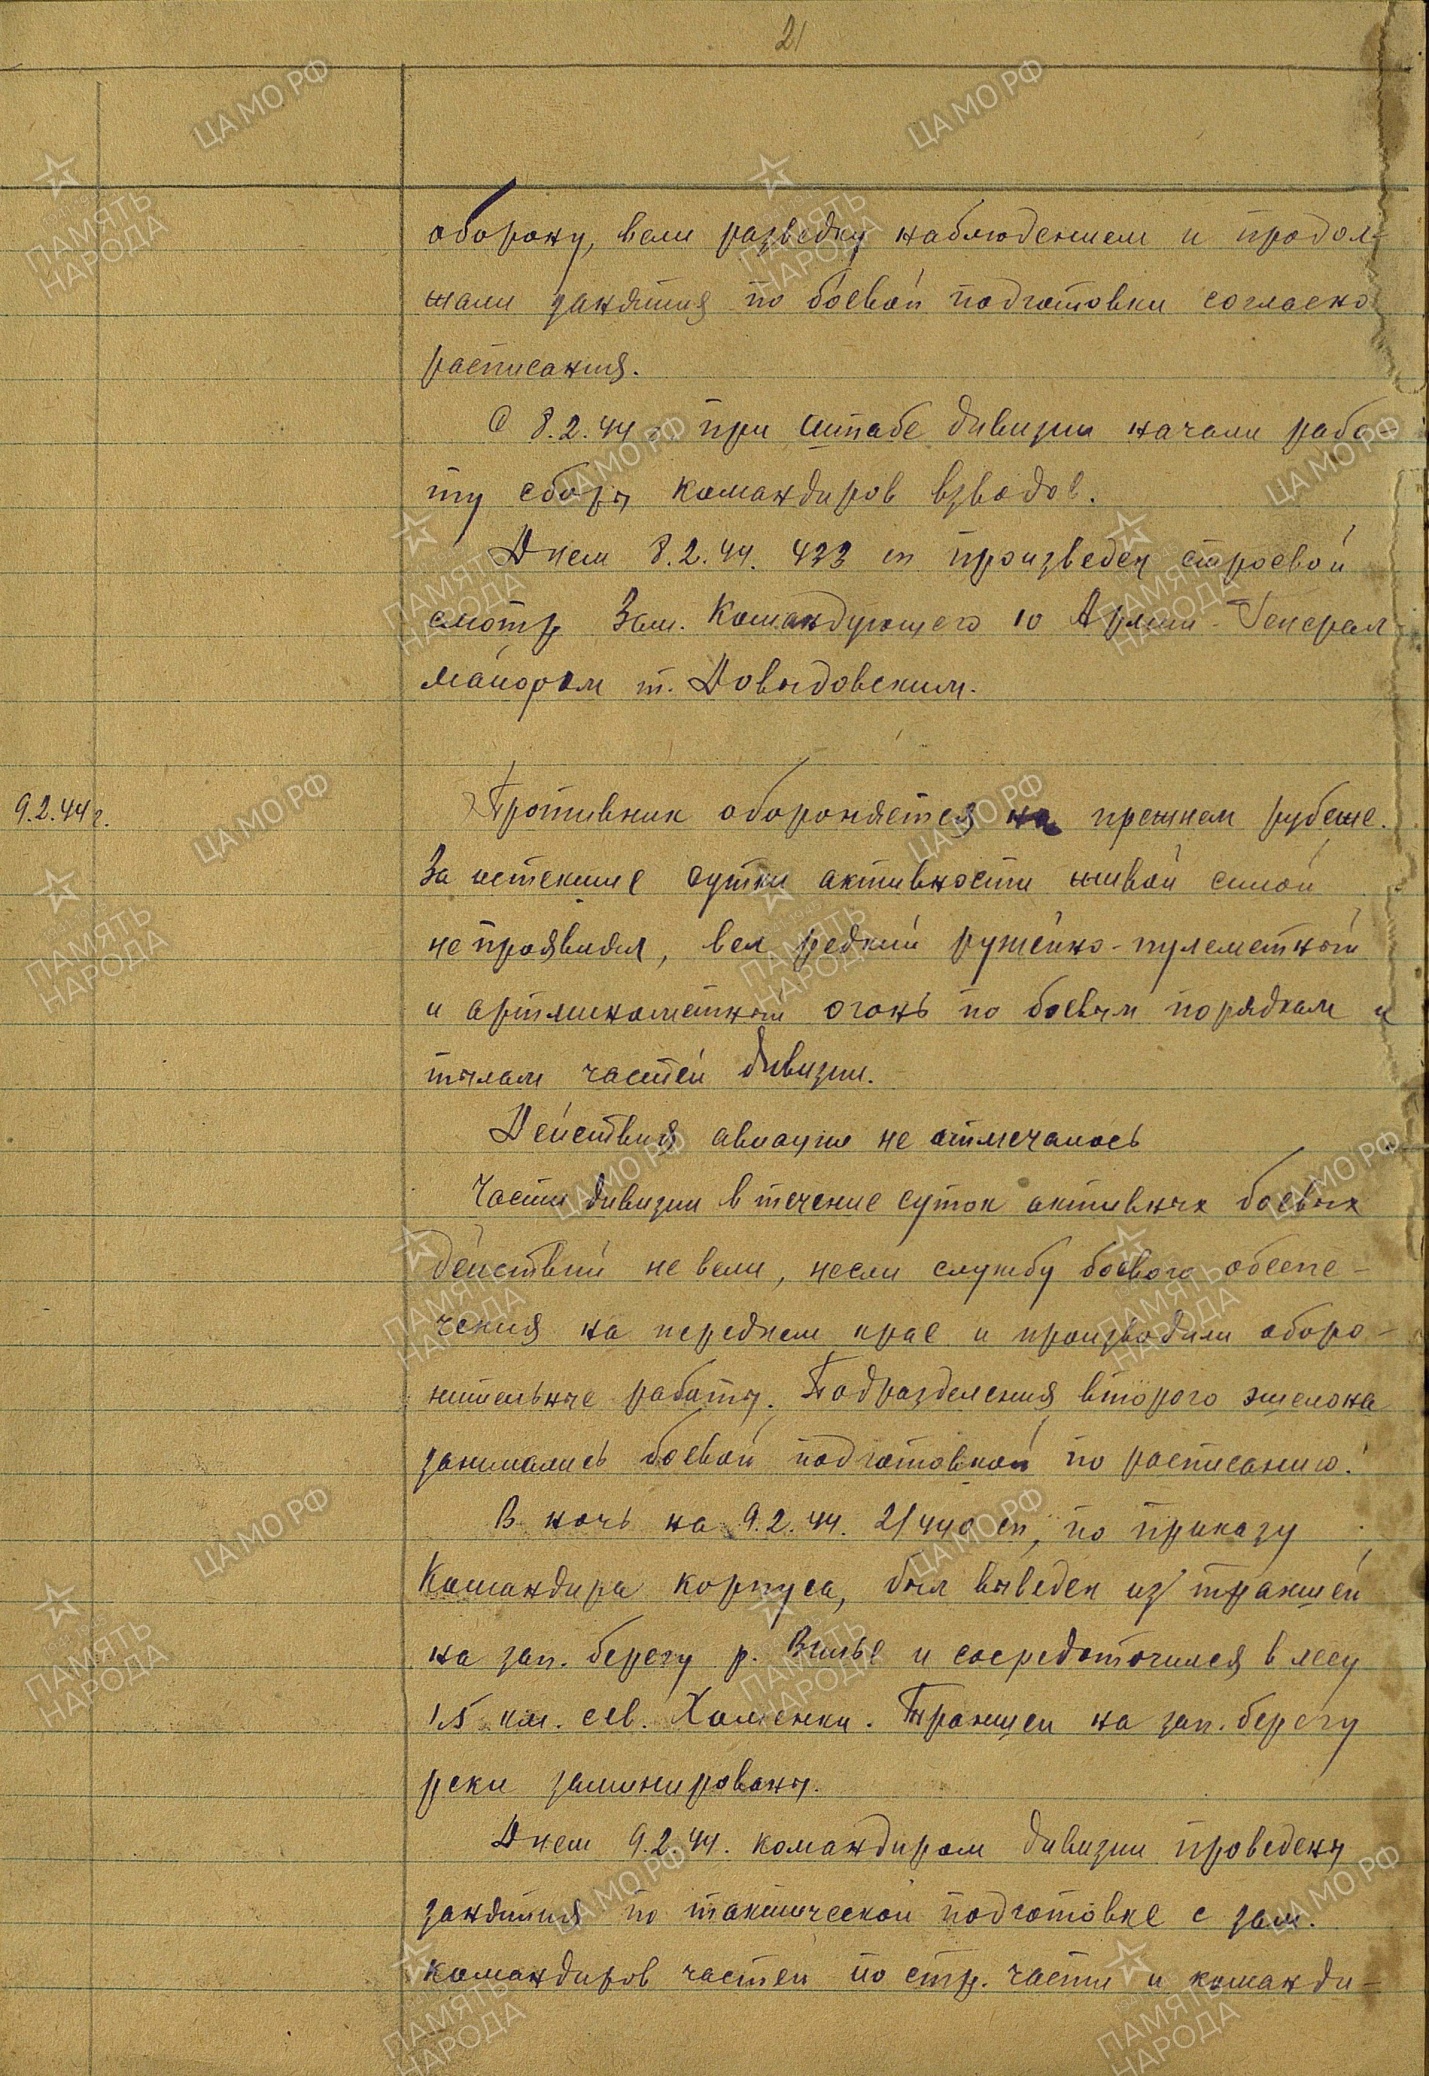 21
оборону, вели разведку наблюдением и продол-
жали занятия по боевой подготовки согласно
расписания.
С 8.2.44 г при штабе дивизии начали рабо-
ту сборы командиров взводов.
Днем 8.2.44. 433 сп произведен строевой
смотр Зам. Командующего 10 Армии Генерал
майором т. Довыдовским.
9.2.44 г.
Противник обороняется на прежнем рубеже.
За истекшие сутки активности живой силой
не проявлял, вел редкий ружейно-пулеметный
и артминометный огонь по боевым порядкам и
тылам частей дивизии.
Действия авиации не отмечалось
Части дивизии в течение суток активных боевых
действий не вели, несли службу боевого обеспе-
чения на переднем крае и производили оборо-
нительные работы. Подразделения второго эшелона
занимались боевой подготовкой по расписанию.
В ночь на 9.2.44. 2/440 сп, по приказу
Командира корпуса, был выведен из траншей
на зап. берегу р. Вилье и сосредоточился в лесу
1,5 км. сев. Хоменки. Траншеи на зап. берегу
реки заминированы.
Днем 9.2.44. командиром дивизии проведены
занятия по тактической подготовке с зам.
командиров частей по стр. части и команди-
ЦА МО РФ
ПАМЯТЬ
НАРОДА